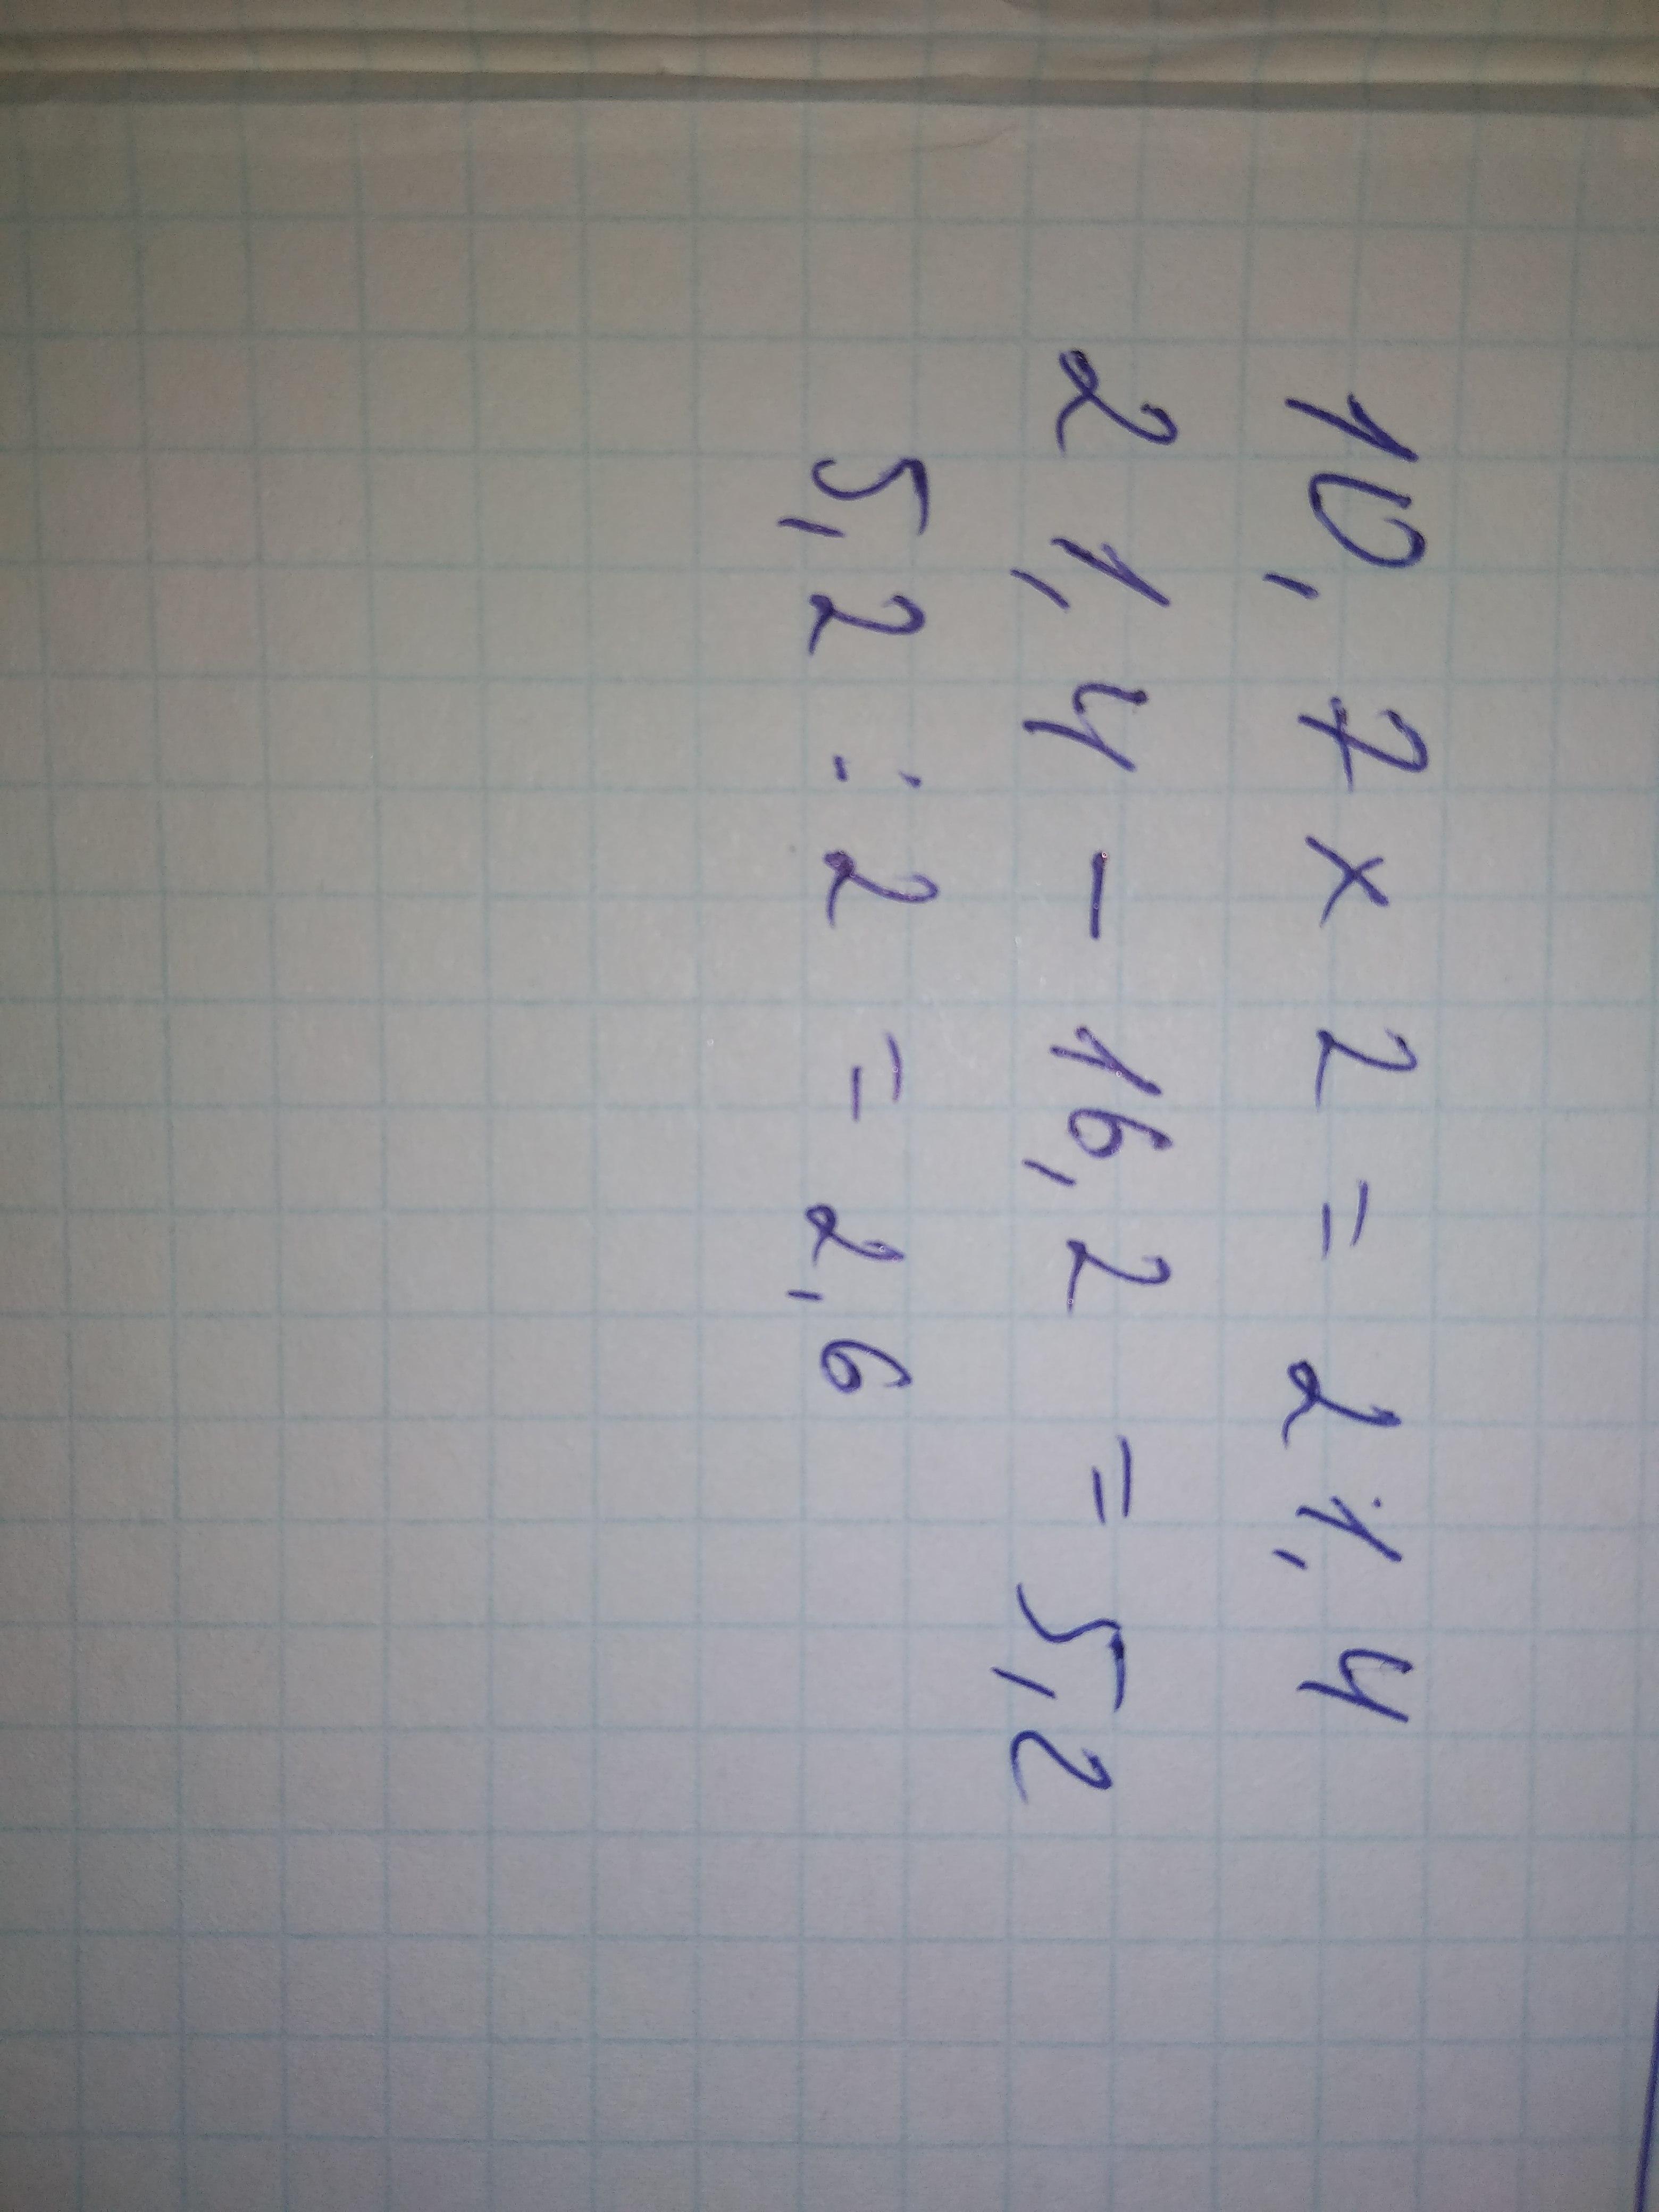 10,7 x 2 = 21,4
21,4 - 16,2 = 5,2
5,2 : 2 = 2,6